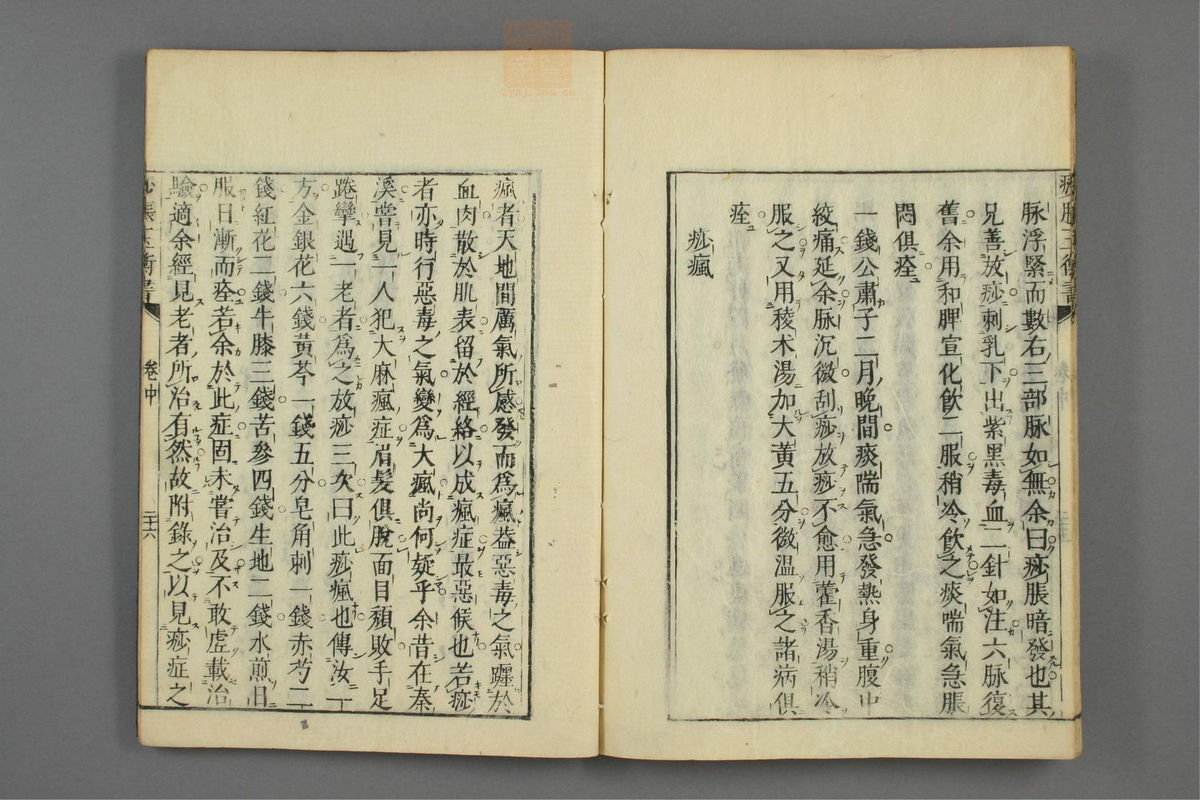 脉浮緊而數右三部脉如無余曰痧脹暗發也其
兄善放痧刺乳下出紫黑毒血二針如注六脉復
舊余用和脾宣化飲二服稍冷飲之痰喘氣急脹
悶俱痊
一錢公肅子二月晚間痰喘氣急發熱身重腹中
絞痛延余脉沉微刮痧放痧不愈用藿香湯稍冷
服之又用稜术湯加大黃五分微温服之諸病俱
痊
痧瘋
瘋者天地間厲氣所感發而爲瘋葢惡毒之氣躧於
血肉散於肌表留於經絡以成瘋症最惡候也若痧
者亦時行惡毒之氣變爲大瘋尚何疑乎余昔在秦
溪嘗見一人犯大麻瘋症眉髮俱脫面目頹敗手足
踡攣遇一老者爲之放痧三次曰此痧瘋也傳汝一
方金銀花六錢黃芩一錢五分皂角刺一錢赤芍二
錢紅花二錢牛膝三錢苦參四錢生地二錢水煎日
服日漸而痊若余於此症固未嘗治及不敢虛載治
驗適余經見老者所治有然故附錄之以見痧症之
痧脹玉衡書
卷中
二十六